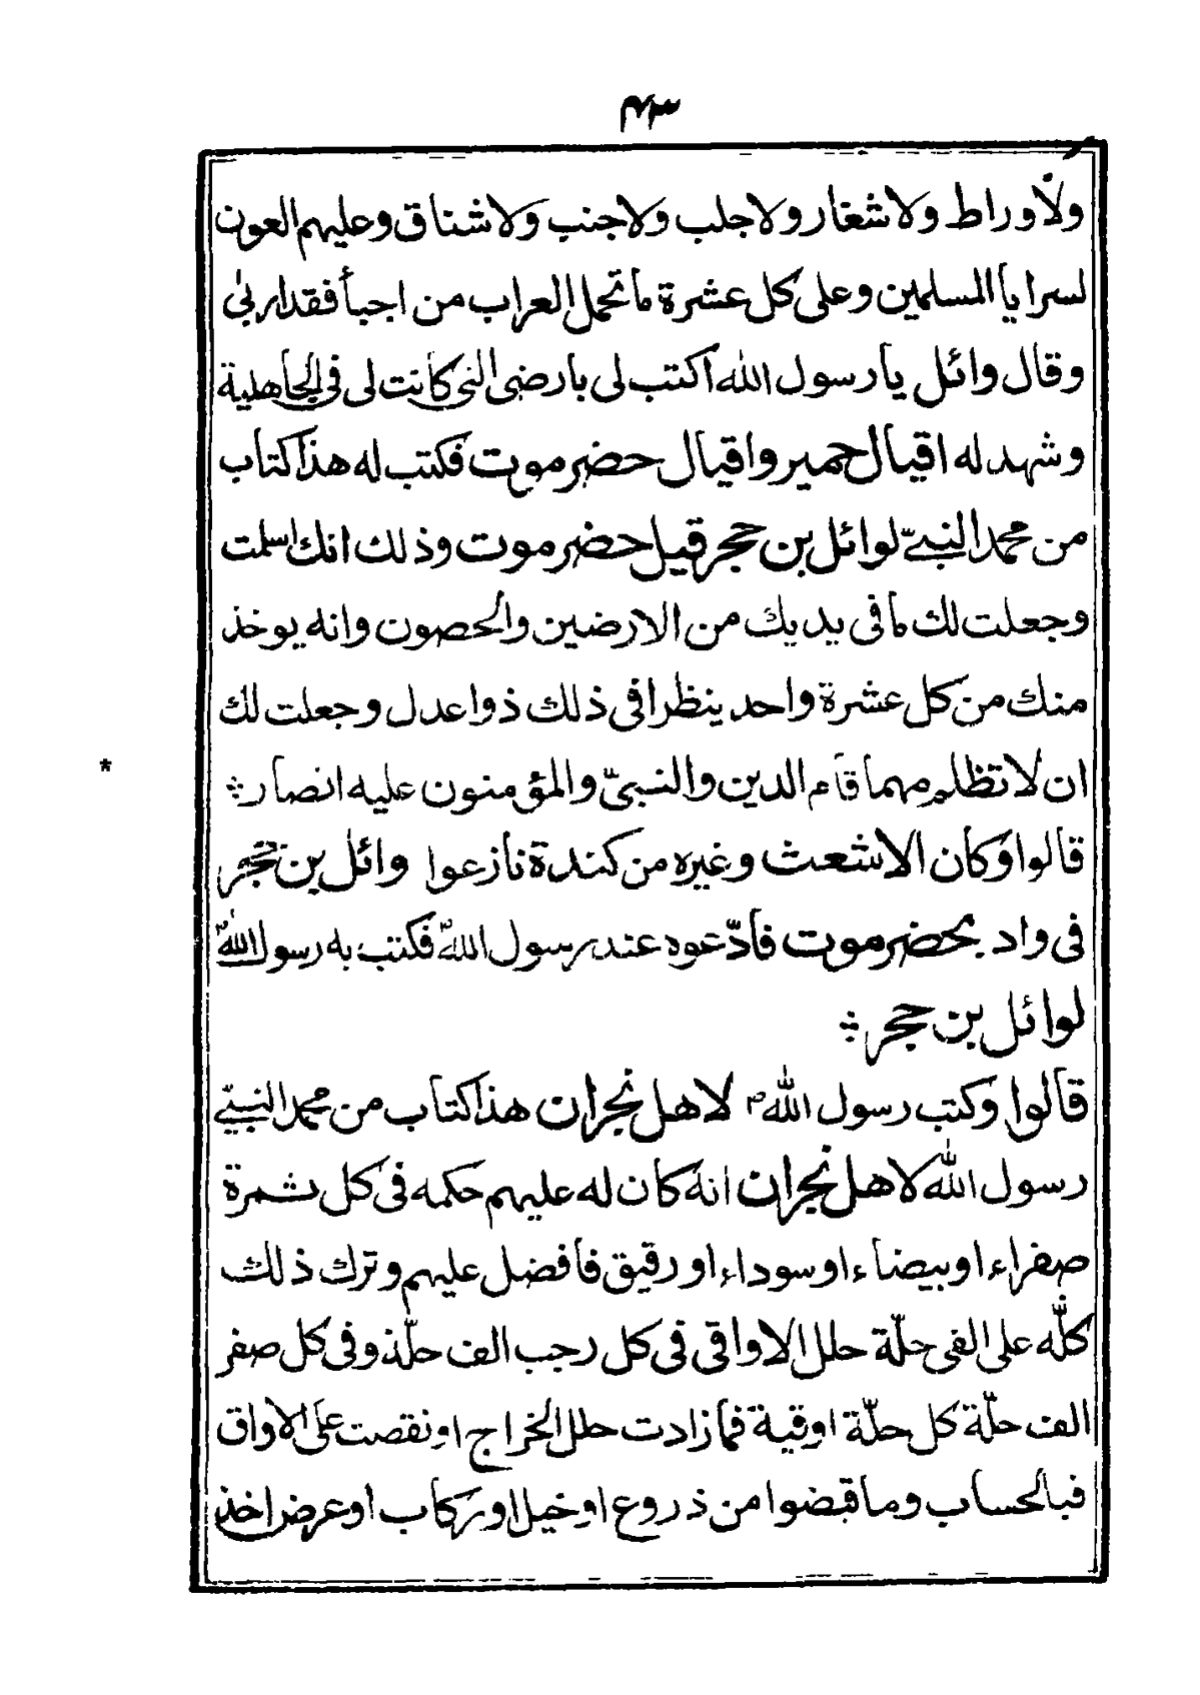 ۴۳
ولا وراط ولا شغار ولا جلب ولا جنب ولا شناق وعليهم العون
لسرايا المسلمين وعلى كل عشرة ما تحمل العراب من اجبأ فقد اربى
وقال وائل يا رسول الله اكتب لى بارضى التى كانت لى فى الجاهلية
وشهد له اقيال حمير واقيال حضرموت فكتب له هذا كتاب
من محمد النبيّ لوائل بن حجر قيل حضرموت وذلك انك اسلمت
وجعلت لك ما فى يديك من الارضين والحصون وانه يوخذ
منك من كل عشرة واحد ينظر فى ذلك ذوا عدل وجعلت لك
ان لا تظلم مهما قام الدين والنبىّ والمؤمنون عليه انصار ؞
*
قالوا وكان الاشعث وغيره من كندة نازعوا وائل بن حجر
فى واد بحضرموت فادّعوه عند رسول اللهؐ فكتب به رسول اللهؐ
لوائل بن حجر ؞
قالوا وكتب رسول الله ؐ لاهل نجران هذا كتاب من محمد النبيّ
رسول الله لاهل نجران انه كان له عليهم حكمه فى كل ثمرة
صفراء او بيضاء او سوداء او رقيق فافضل عليهم وترك ذلك
كلّه على الفى حلّة حلل الاواقى فى كل رجب الف حلّة وفى كل صفر
الف حلّة كل حلّة اوقية فما زادت حلل الخراج او نقصت على الاواق
فبالحساب وما قبضوا من دروع او خيل او ركاب او عرض اخذ